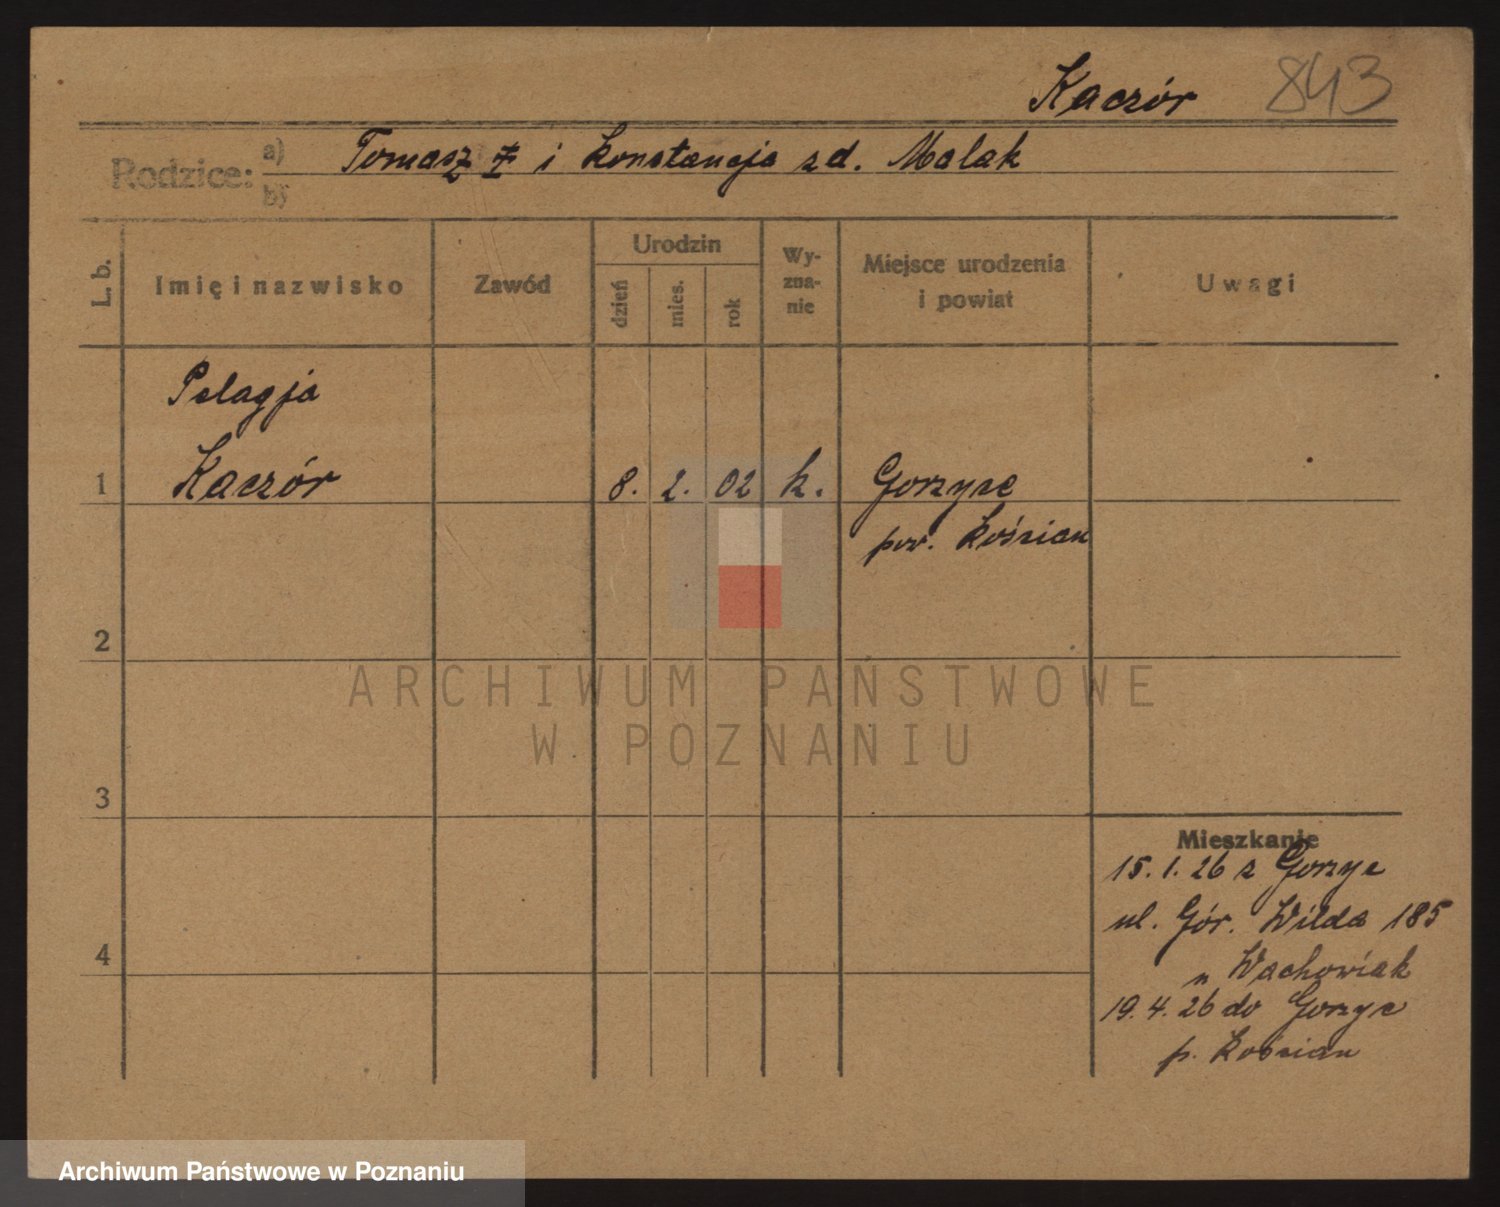 Kaczór 843
Rodzice: a) Tomasz ‡ i Konstancja zd. Malak
b)
L. b. Imię i nazwisko Zawód Urodzin dzień mies. rok Wy-zna-nie Miejsce urodzenia i powiat Uwagi
Pelagja
1 Kaczór 8. 2. 02 k. Gorzyce
pow. Kościan
2
ARCHIWUM PAŃSTWOWE
W POZNANIU
3
Mieszkanie
15. 1. 26 z Gorzyc
ul. Gór. Wilda 185
4 u Wachowiak
19. 4. 26 do Gorzyc
p. Kościan
Archiwum Państwowe w Poznaniu